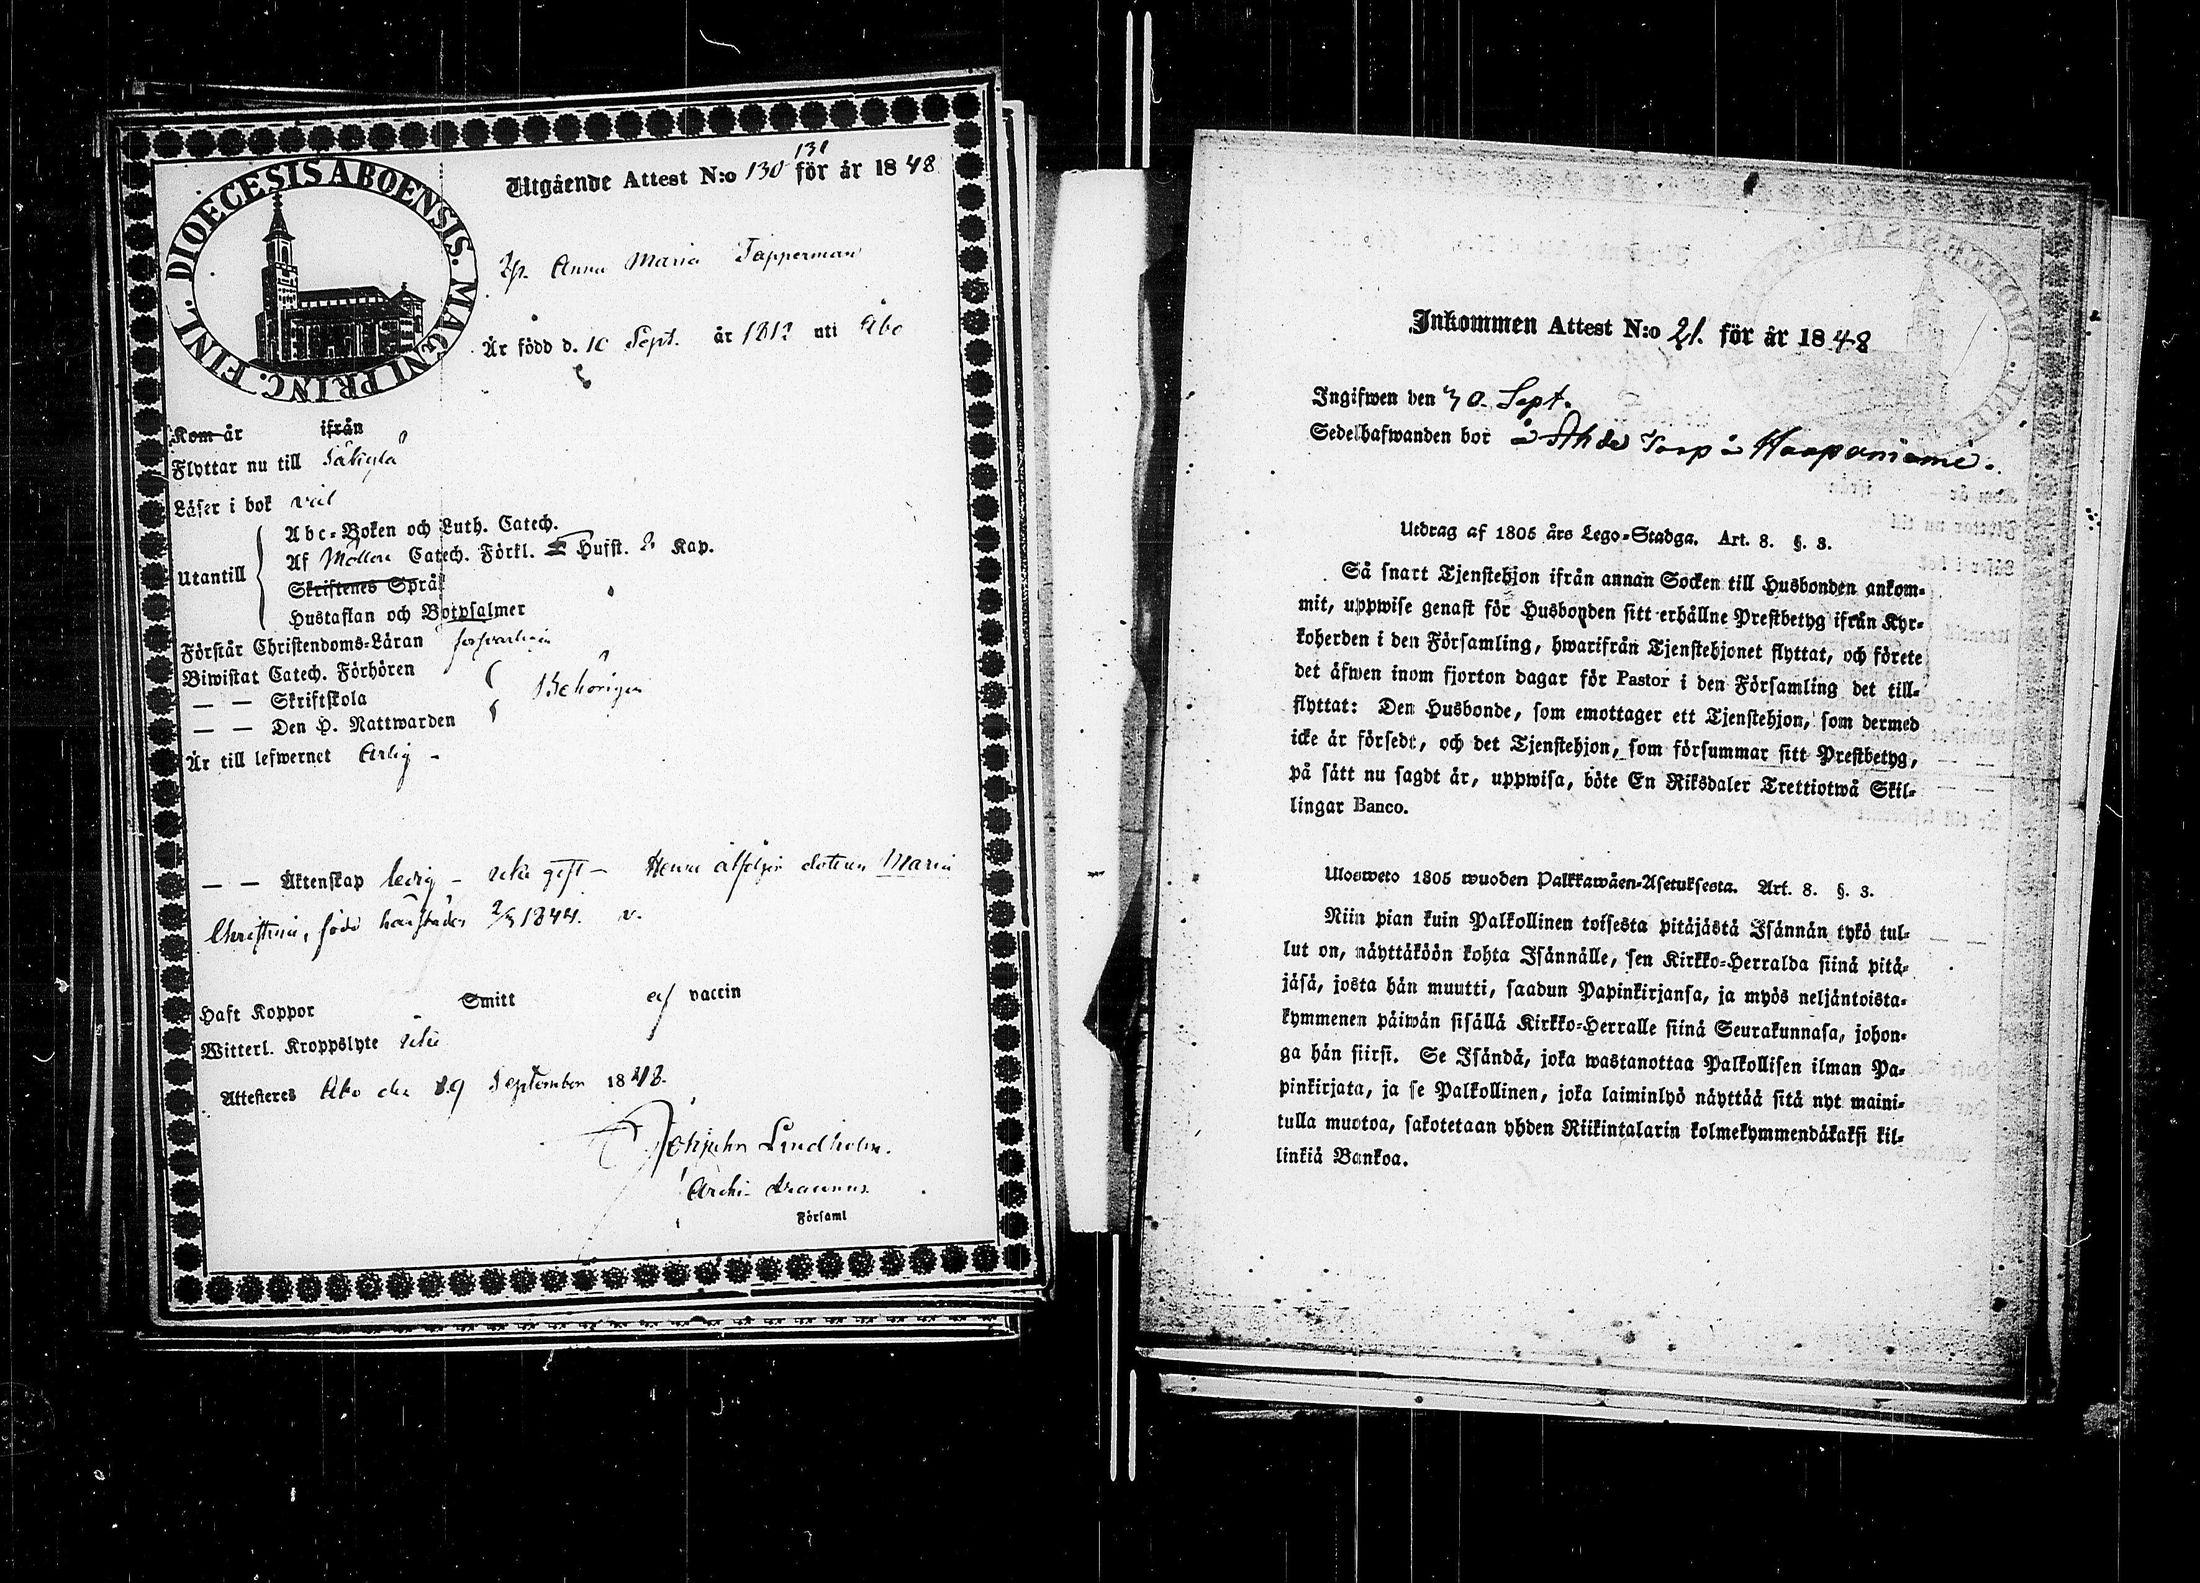 DIOECESIS ABOENSIS. MAGNI PRINC. FINL.
Utgående Attest N:o 130 131 för år 1848
Anna Maria Tapperman
Är född d. 10 Sept. år 1812 uti Åbo
Kom år ifrån
Flyttar nu till Säkylä
Läser i bok väl
Utantill
Abc-Boken och Luth. Catech.
Af Möllers Catech. Förkl. Husst. 2 Kap.
Skriftenes Språk
Hustaflan och Botpsalmer
Förstår Christendoms-Läran försvarligen
Biwistat Catech. Förhören
— — Skriftskola
— — Den H. Nattwarden
Behörigen
Är till lefwernet Ärlig –
— — Äktenskap ledig – icke gift – Henne åtföljer dottren Maria
Christina, född härstädes 1844. v.
Haft Koppor Smitt af vaccin
Witterl. Kroppslyte icke
Attesteres Åbo den 29 September 1848.
Lindholm.
Archi-
Församl
Inkommen Attest N:o 21. för år 1848
Ingifwen den 30 Sept.
Sedelhafwanden bor å Ahde Torp å Haapaniemi.
Utdrag af 1805 års Lego-Stadga. Art. 8. §. 3.
Så snart Tjenstehjon ifrån annan Socken till Husbonden ankom-
mit, uppwise genast för Husbonden sitt erhållne Prestbetyg ifrån Kyr-
koherden i den Församling, hwarifrån Tjenstehjonet flyttat, och förete
det äfwen inom fjorton dagar för Pastor i den Församling det till-
flyttat: Den Husbonde, som emottager ett Tjenstehjon, som dermed
icke är försedt, och det Tjenstehjon, som försummar sitt Prestbetyg,
på sätt nu sagdt är, uppwisa, böte En Riksdaler Trettiotwå Skil-
lingar Banco.
Ulosweto 1805 wuoden Palkkawäen-Asetuksesta. Art. 8. §. 3.
Niin pian kuin Palkollinen toisesta pitäjästä Isännän tykö tul-
lut on, näyttäköön kohta Isännälle, sen Kirkko-Herralda siinä pitä-
jäsä, josta hän muutti, saadun Papinkirjansa, ja myös neljäntoista-
kymmenen päiwän sisällä Kirkko-Herralle siinä Seurakunnasa, johon-
ga hän siirsi. Se Isändä, joka wastanottaa Palkollisen ilman Pa-
pinkirjata, ja se Palkollinen, joka laiminlyö näyttää sitä nyt maini-
tulla muotoa, sakotetaan yhden Riikintalarin kolmekymmendäkaksi kil-
linkiä Bankoa.